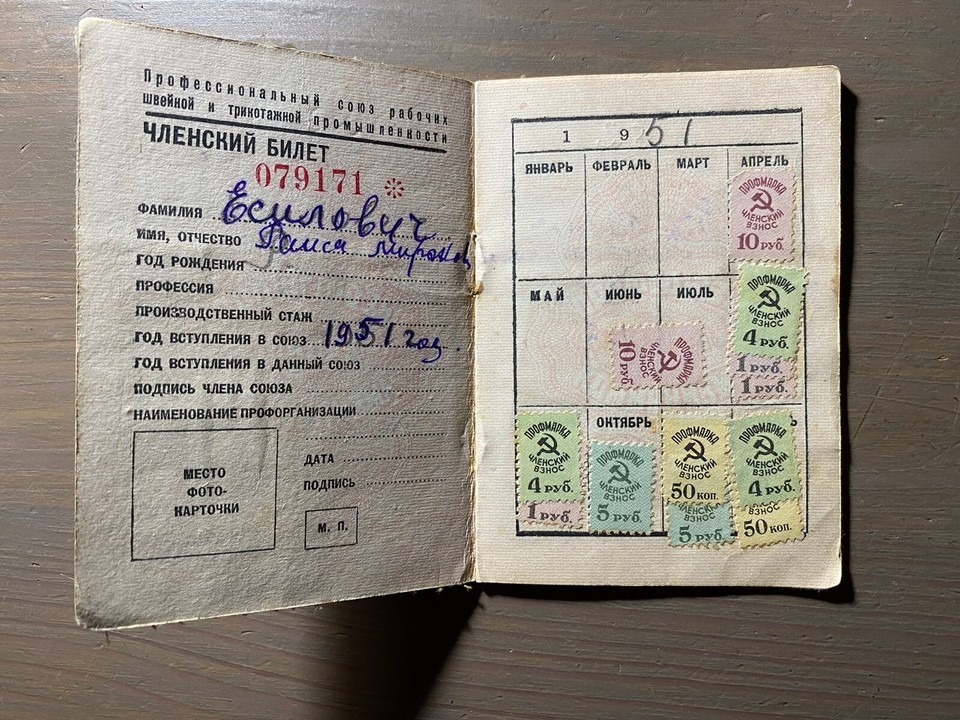 Профессиональный союз рабочих
швейной и трикотажной промышленности
ЧЛЕНСКИЙ БИЛЕТ
079171 *
ФАМИЛИЯ Есилович
ИМЯ, ОТЧЕСТВО Раиса
ГОД РОЖДЕНИЯ
ПРОФЕССИЯ
ПРОИЗВОДСТВЕННЫЙ СТАЖ
ГОД ВСТУПЛЕНИЯ В СОЮЗ 1951 год.
ГОД ВСТУПЛЕНИЯ В ДАННЫЙ СОЮЗ
ПОДПИСЬ ЧЛЕНА СОЮЗА
НАИМЕНОВАНИЕ ПРОФОРГАНИЗАЦИИ
ДАТА
ПОДПИСЬ
МЕСТО
ФОТО-
КАРТОЧКИ
М. П.
1951
ЯНВАРЬ ФЕВРАЛЬ МАРТ АПРЕЛЬ
ПРОФМАРКА
ЧЛЕНСКИЙ
ВЗНОС
10 РУБ.
МАЙ ИЮНЬ ИЮЛЬ
ПРОФМАРКА
ЧЛЕНСКИЙ
ВЗНОС
4 РУБ.
1 РУБ.
1 РУБ.
ПРОФМАРКА
ЧЛЕНСКИЙ
ВЗНОС
10 РУБ.
ОКТЯБРЬ
ПРОФМАРКА
ЧЛЕНСКИЙ
ВЗНОС
4 РУБ.
1 РУБ.
ПРОФМАРКА
ЧЛЕНСКИЙ
ВЗНОС
5 РУБ.
ПРОФМАРКА
ЧЛЕНСКИЙ
ВЗНОС
50 КОП.
ЧЛЕНСКИЙ
ВЗНОС
5 РУБ.
ПРОФМАРКА
ЧЛЕНСКИЙ
ВЗНОС
4 РУБ.
ВЗНОС
50 КОП.